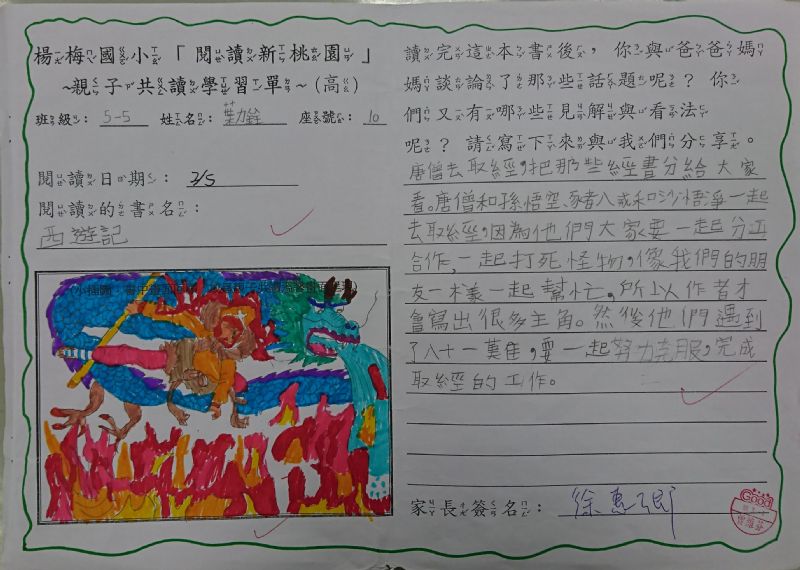 楊梅國小「閱讀新桃園」
~親子共讀學習單~(高)
班級：5-5 姓名：葉 座號：10
閱讀日期：2/5
閱讀的書名：
西遊記
讀完這本書後，你與爸爸媽
媽談論了那些話題呢？你
們又有哪些見解與看法
呢？請寫下來與我們分享。
唐僧去取經，把那些經書分給大家
看。唐僧和孫悟空、豬八戒和沙悟淨一起
去取經，因為他們大家要一起分工
合作，一起打死怪物，像我們的朋
友一樣一起幫忙，所以作者才
會寫出很多主角。然後他們遇到
了八十一難，要一起努力克服，完成
取經的工作。
家長簽名：徐惠
Good